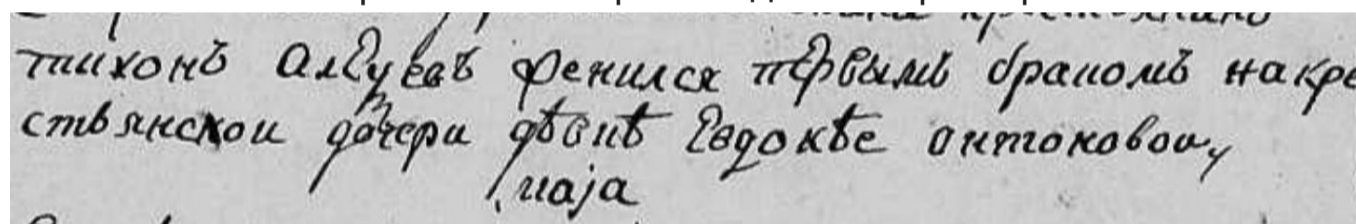 тихонъ женился первымъ бракомъ накре
стьянскои дочери дѣвиѣ Евдокѣе антоновои,
маја